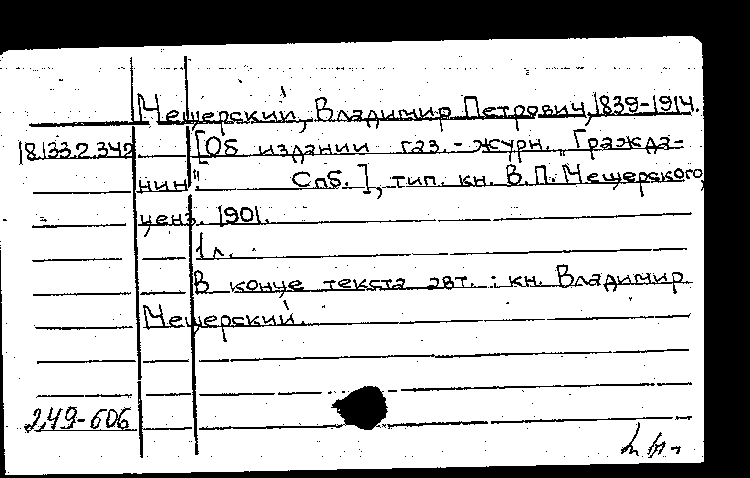 Мещерский, Владимир Петрович, 1839-1914.
18.133.2.342 [Об издании газ.-журн. "Гражда-
нин". Спб.], тип. кн. В.П. Мещерского,
ценз. 1901.
1 л.
В конце текста авт.: кн. Владимир
Мещерский.
249-606